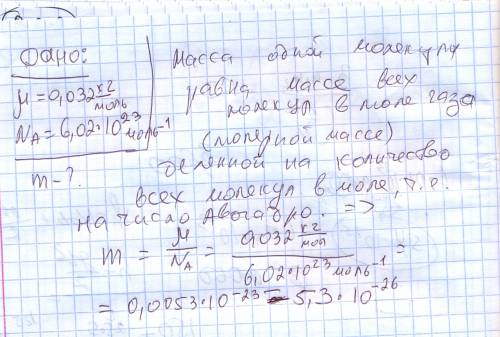 Дано:
μ=0,032 кг/моль
N_A=6,02·10²³ моль⁻¹
m-?
Масса одной молекулы
равна массе всех
молекул в моле газа
(молярной массе)
деленной на количество
всех молекул в моле, т.е.
на число Авогадро. =>
m = μ/N_A = 0,032 кг/мол / 6,02·10²³ моль⁻¹ =
= 0,0053·10⁻²³ = 5,3·10⁻²⁶